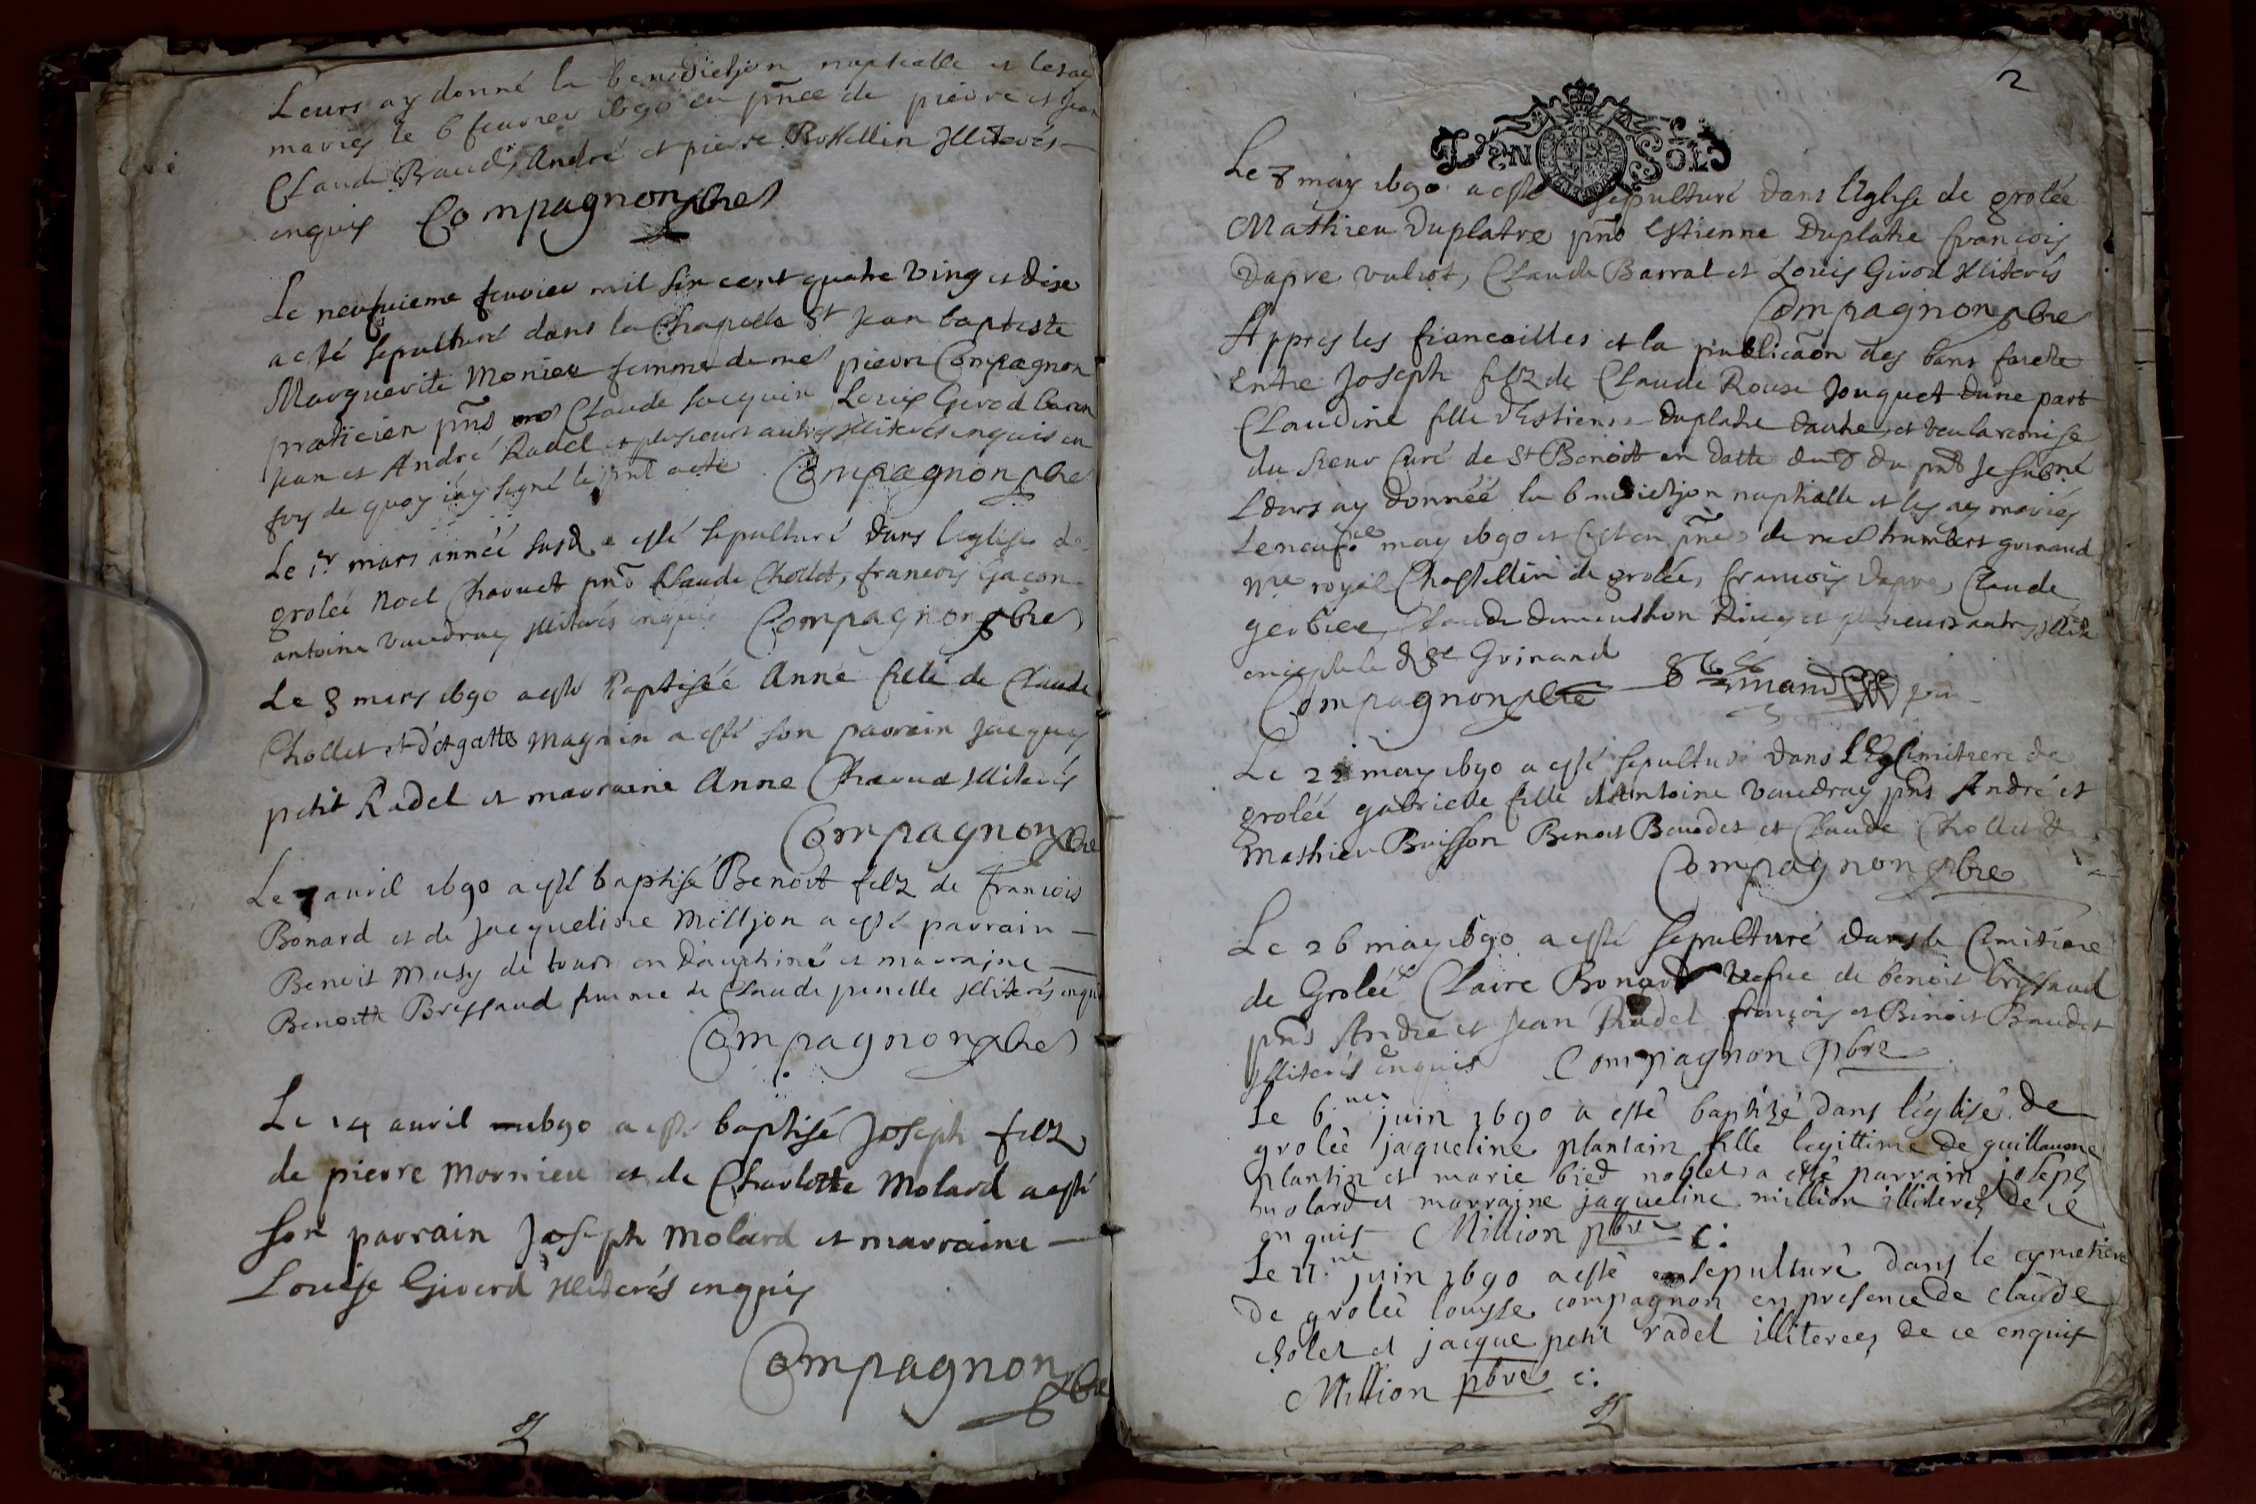 Leurs ay donné la benedictjon nuptialle et les ay
mariés le 6 feurier 1690 en pñce de pierre et jean
Claude Braud, André et pierre Rossellin illiterés
enquis Compagnon pbre
Le neufuieme feurier mil six cent quatre ving et dise
a esté sepulturé dans la Chapelle St Jean baptiste
Marguerite Monier femme de me pierre Compagnon
praticien pñs Claude Jacquin Louis Girod
Jean et André Radel et plusieurs autres illiterés enquis en
foy de quoy i'ay signé le pñt acte Compagnon pbre
Le 1er mars année susd a esté sepulturé dans l'eglise de
grolée Noel Chavuet pñs Claude Chollet, francois Gacon
antoine vaudray illiterés enquis Compagnon pbre
Le 8 mars 1690 a esté Baptisée Anne fille de Claude
Chollet et d'Agatte Magnin a esté son parrain Jacques
petit Radel et marraine Anne illiterés
Compagnon pbre
Le 7 auril 1690 a esté baptisé Benoit filz de francois
Bonard et de Jacqueline Milljon a esté parrain
Benoit Musy de tours en Dauphiné et marrajne
Benoitte Bressaud femme de Claude penelle illiterés enquis
Compagnon pbre
Le 14 auril 1690 a esté baptisé Joseph filz
de pierre Mornieu et de Charlotte Molard a esté
son parrain Joseph Molard et marraine
Louise Giverd illiterés enquis
Compagnon pbre
2
DEN SOLS
Le 8 may 1690 a esté sepulturé dans l'Eglise de grolée
Mathieu Duplatre pñs Estienne Duplatre francois
Dapre vuliot, Claude Barral et Louis Girod illiterés
Compagnon pbre
Appres les fiancailles et la publicãon des bans faicte
entre Joseph filz de Claude Rouse Jouquet d'une part
Claudine fille d'Estienne Duplatre d'autre, et veu la remise
du sieur Curé de St Benoit en datte du 8 du pñt Je subné
Leurs ay donnéé la benedictjon nuptialle et les ay mariés
Le neufe may 1690 et C'est en pñce de me humbert guinand
nre royal Chastellin de grolée, francois dapre, Claude
gerbier, Claude et plusieurs autres
Guinand
Compagnon pbre Guinand
Le 22 may 1690 a esté sepulturé dans Cimitiere de
grolée gabrielle fille d'Antoine Vaudray pñs André et
Mathieu Buisson Benoit Baudet et Claude Chollet
Compagnon pbre
Le 26 may 1690 a esté sepulturé dans le Cimitiere
de Grolée Claire Bonard vefue de benoit brissaud
pñs André et Jean Radel françois et Binoit Baudet
illiterés enquis Compagnon pbre
Le 6.me juin 1690 a esté baptizé dans l'église de
grolée jaqueline plantain fille legittime de guillaume
plantin et marie bied noblet a esté parrain joseph
molard et marraine jaqueline million illiterez de ce
enquis Million pbre C:
Le 11.me juin 1690 a esté sepulturé dans le cymetiere
de grolée louyse compagnon en presence de claude
cholet et jacque petit radel illiterez de ce enquis
Million pbre c: